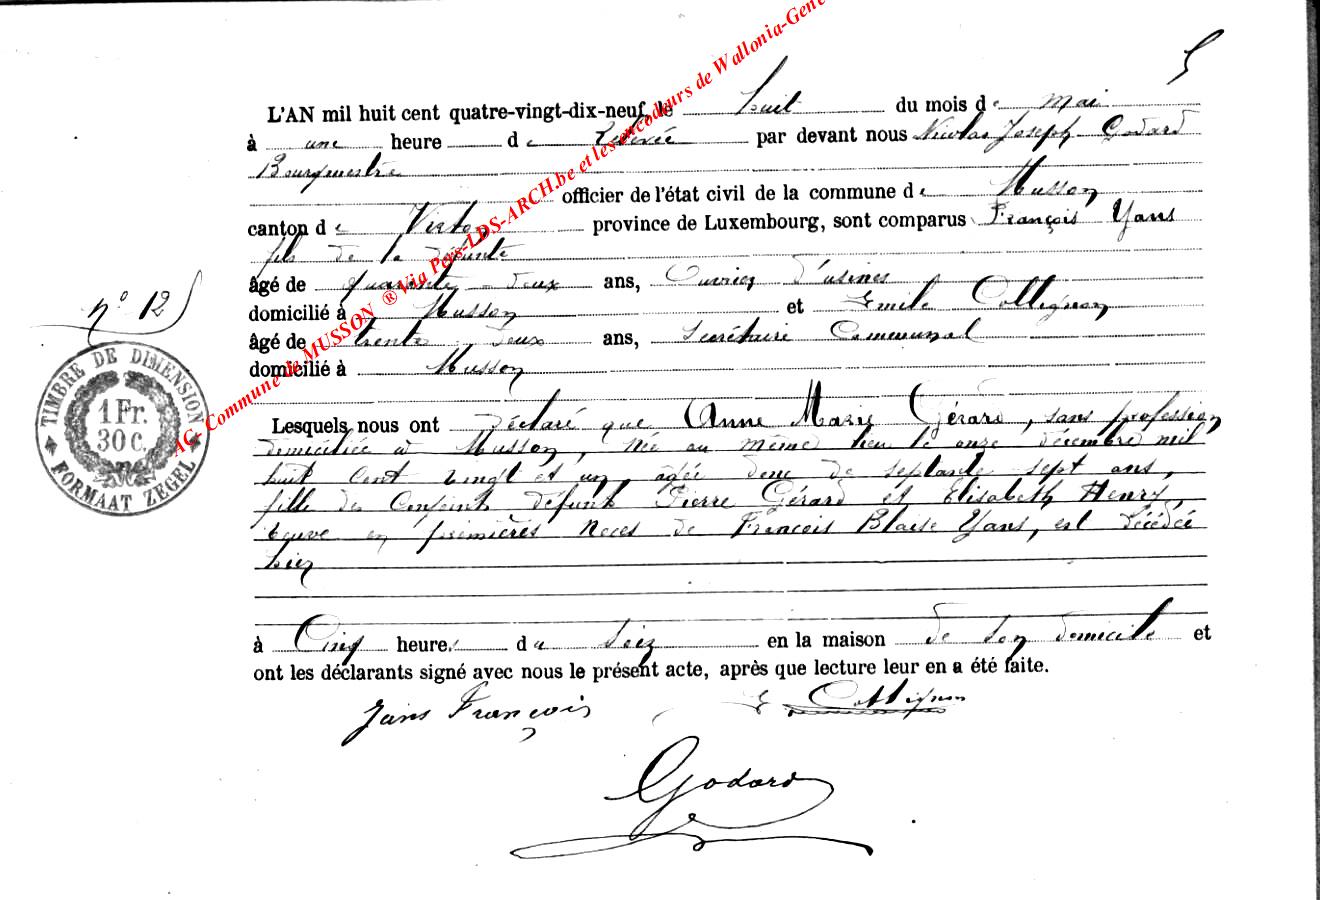 5
L'AN mil huit cent quatre-vingt-dix-neuf, le huit du mois de mai
à une heure de Relevée par devant nous Nicolas Joseph Godard
Bourgmestre
officier de l'état civil de la commune de Musson
canton de Virton province de Luxembourg, sont comparus François Yans
fils de la défunte
âgé de quarante-deux ans, Ouvrier d'usines
domicilié à Musson et Emile Collignon
âgé de trente-deux ans, Secrétaire Communal
domicilié à Musson
Lesquels nous ont déclaré que Anne Marie Gérard, sans profession
domiciliée à Musson, née au même lieu le onze décembre mil
huit cent vingt et un, agée donc de septante sept ans,
fille des conjoints défunts Pierre Gérard et Elisabeth Henry,
veuve en premières noces de François Blaise Yans, est décédée
hier
à Cinq heures du soir en la maison de son domicile et
ont les déclarants signé avec nous le présent acte, après que lecture leur en a été faite.
Yans François E Collignon
Godard
n° 125
TIMBRE DE DIMENSION
1 Fr.
30 C.
FORMAAT ZEGEL
AC Commune de MUSSON ® Via Pers-LDS-ARCH.be et les encodeurs de Wallonia-Gene